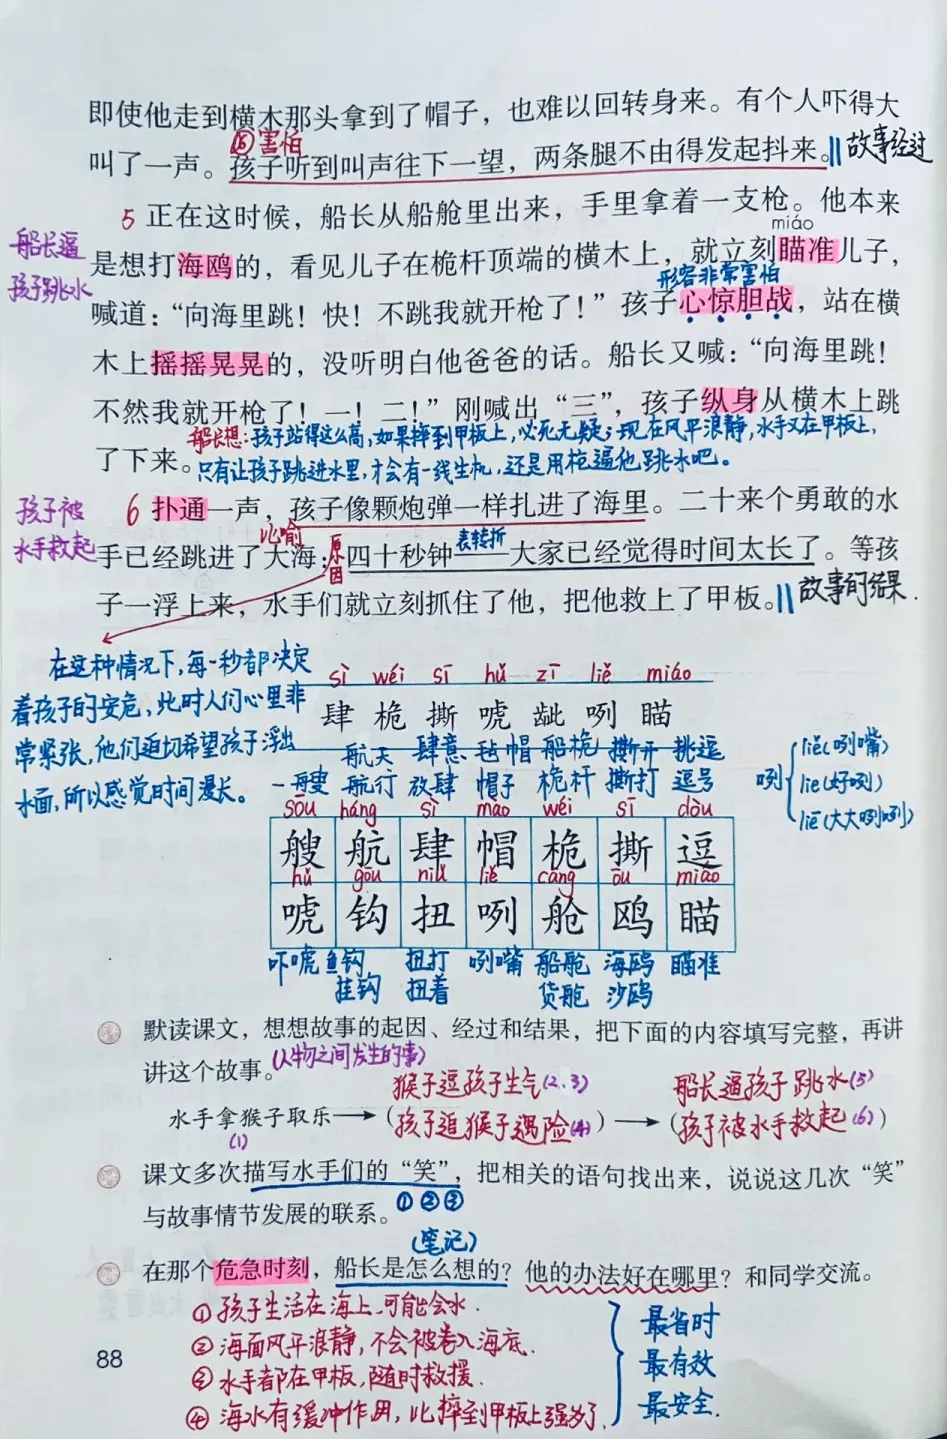 即使他走到横木那头拿到了帽子，也难以回转身来。有个人吓得大
⑥害怕
叫了一声。孩子听到叫声往下一望，两条腿不由得发起抖来。‖故事经过
5 正在这时候，船长从船舱里出来，手里拿着一支枪。他本来
miáo
船长逼
孩子跳水
是想打海鸥的，看见儿子在桅杆顶端的横木上，就立刻瞄准儿子，
形容非常害怕
喊道：“向海里跳！快！不跳我就开枪了！”孩子心惊胆战，站在横
木上摇摇晃晃的，没听明白他爸爸的话。船长又喊：“向海里跳！
不然我就开枪了！一！二！”刚喊出“三”，孩子纵身从横木上跳
船长想：孩子站得这么高，如果摔到甲板上，必死无疑；现在风平浪静，水手又在甲板上，
了下来。
只有让孩子跳进水里，才会有一线生机，还是用枪逼他跳水吧。
孩子被
水手救起
6 扑通一声，孩子像颗炮弹一样扎进了海里。二十来个勇敢的水
比喻
原因
表转折
手已经跳进了大海：四十秒钟——大家已经觉得时间太长了。等孩
子一浮上来，水手们就立刻抓住了他，把他救上了甲板。‖故事的结果.
在这种情况下，每一秒都决定
着孩子的安危，此时人们心里非
常紧张，他们迫切希望孩子浮出
水面，所以感觉时间漫长。
sì wéi sī hǔ zī liě miáo
肆 桅 撕 唬 龇 咧 瞄
航天 肆意 毡帽 船桅 撕开 挑逗
一艘 航行 放肆 帽子 桅杆 撕打 逗号
咧
liě(咧嘴)
lie(好咧)
liē(大大咧咧)
sōu háng sì mào wéi sī dòu
艘 航 肆 帽 桅 撕 逗
hǔ gōu niǔ liě cāng ōu miáo
唬 钩 扭 咧 舱 鸥 瞄
吓唬 鱼钩 扭打 咧嘴 船舱 海鸥 瞄准
挂钩 扭着 货舱 沙鸥
默读课文，想想故事的起因、经过和结果，把下面的内容填写完整，再讲
讲这个故事。(人物之间发生的事)
猴子逗孩子生气(2、3) 船长逼孩子跳水(5)
水手拿猴子取乐→(孩子追猴子遇险(4))→(孩子被水手救起(6))
(1)
课文多次描写水手们的“笑”，把相关的语句找出来，说说这几次“笑”
①②③
与故事情节发展的联系。
(笔记)
在那个危急时刻，船长是怎么想的？他的办法好在哪里？和同学交流。
①孩子生活在海上，可能会水.
②海面风平浪静，不会被卷入海底.
③水手都在甲板，随时救援.
④海水有缓冲作用，比摔到甲板上强多了.
最省时
最有效
最安全.
88